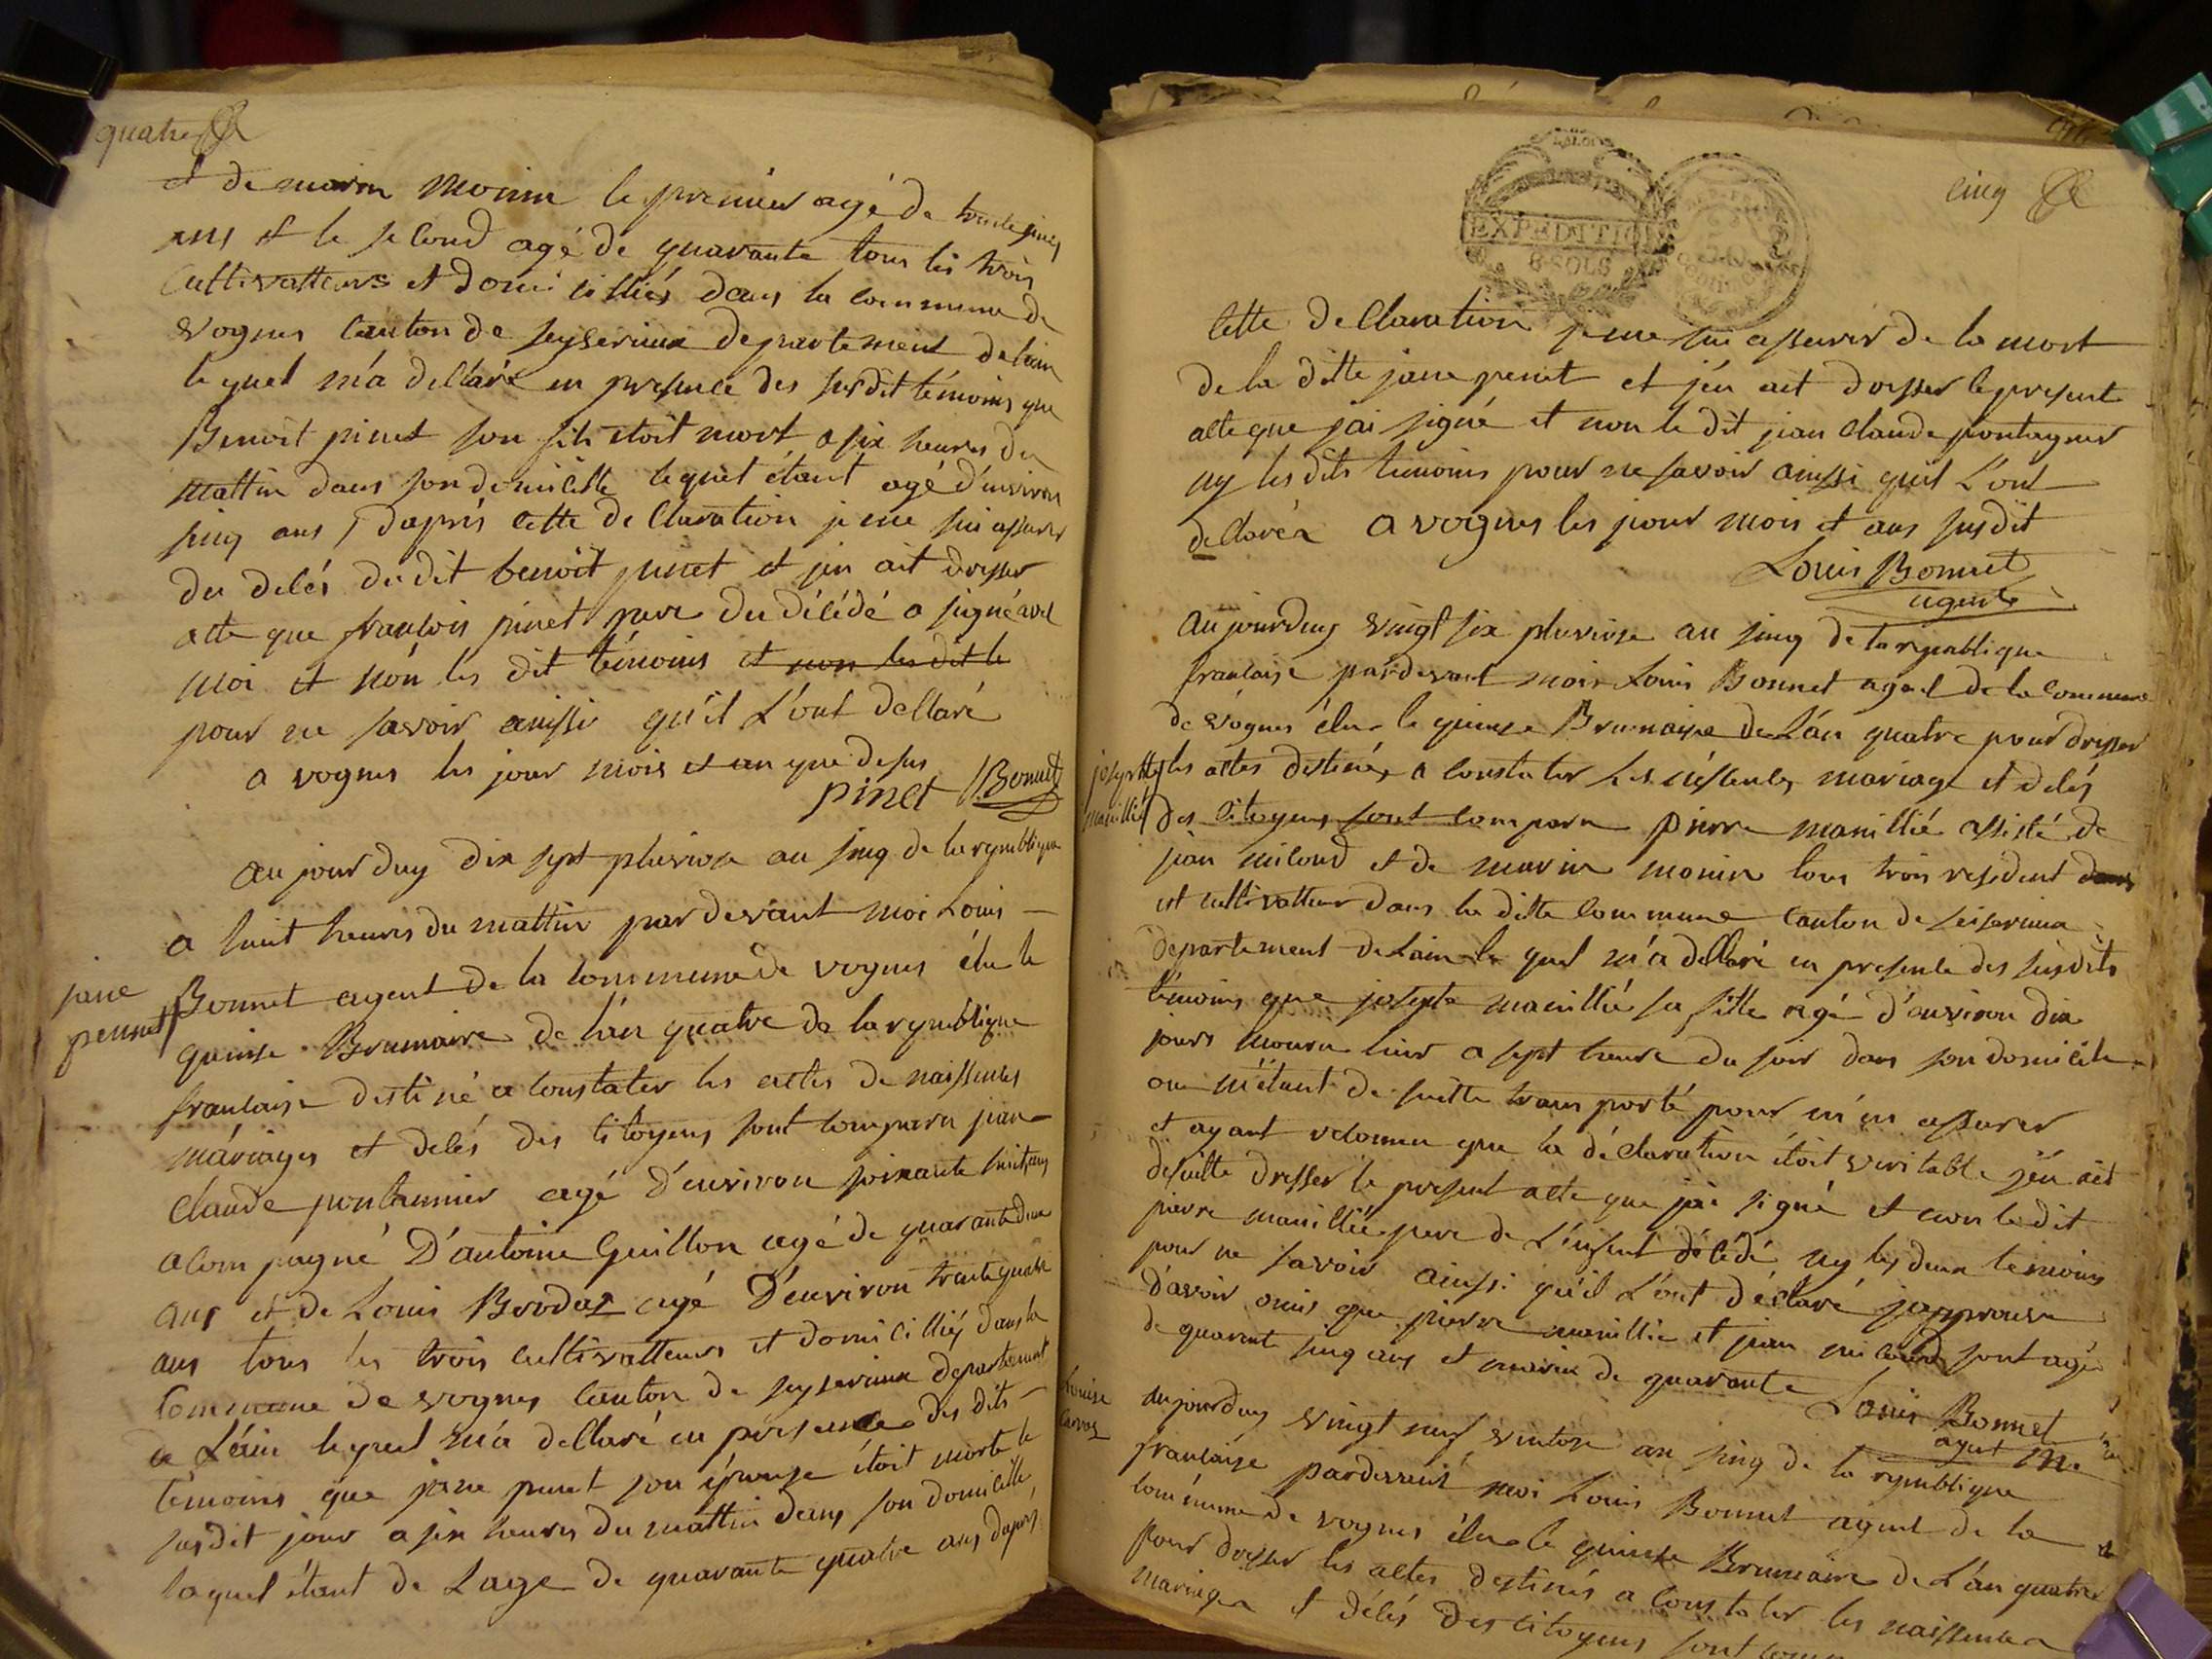 quatre
et de marin monin le premier agé de trente sinq
ans et le second agé de quarante tous les trois
Cultivatteurs et domicilliés dans la commune de
vognes canton de seyserieux departement de lain
lequel m'a dellaré en presence des susdit témoins que
Benoit pinet son fils etoit mort a six heures du
mattin dans son domicille lequel étant agé d'environ
sinq ans, d'aprés cette declaration je me sui assurer
du delés du dit benoit pinet et jen ait dresser
atte que francois pinet pere du délédé a signé avel
moi et non les dit témoins et non les dit le
pour ne savoir ainssi qu'il L'ont dellaré
a vognes les jour mois et an que desus
pinet L. Bonnet
au jourduy dix sept pluviose an sinq de la republique
a huit heures du mattin par devant moi Louis
jane
pennet
Bonnet agent de la commune de vognes élu le
quinse Brumaire de l'an quatre de la republique
francaise destiné a constater les actes de naissences
máriages et delés des citoyens sont comparu jean
claude pontannier agé d'environ soixante huit ans
acompagné D'antoine Guillon agé de quarante deux
ans et de Louis Brodaz agé D'environ trente quatre
ans tous les trois cultivatteurs et domicilliés dans la
commune de vognes canton de seyserieux departement
de L'ain lequel m'a dellaré en presence des dits
témoins que jane penet son épouse étoit morte le
susdit jour a six heures du mattin dans son domicille
laquel étant de Lage de quarante quatre ans daprés
cinq
LA LOI
EXPEDITION
8 SOLS
cette declaration je me sui assurer de la mort
de la ditte jane penet et j'en ait dresser le present
alte que jai signé et non le dit jean claude pontagnier
ny les dits temoins pour ne savoir ainssi quil L'ont
dellarér a vognes les jour mois et ans susdit
Louis Bonnet
agent
aujourduy vingt six pluviose an sinq de la republique
francaise pardevant moi Louis Bonnet agent de la commune
de vognes élu le quinse Brumaire de L'an quatre pour dresser
josephte
manillié
les actes destinés a constater les néssences mariage et delés
des citoyens sont comparu pierre manillié assisté de
jean milond et de marin monin tous trois residant dans
et cultivatteur dans la ditte commune canton de seiserieux
departement de Lain le quel m'a dellaré en presente des susdits
témoins que josephte manillié sa fille agé d'environ dix
jours mouru hier a sept heure du soir dans son domicile
ou m'étant de suitte transporté pour m'en assurer
et ayant reconnu que la déclaration étoit veritable j'en ait
desuitte dresser le present acte que jai signé et non le dit
pierre manillié pere de L'enfent délédé ny les deux temoins
pour ne savoir ainssi qu'il L'ont déclaré japprouve
d'avoir omis que pierre manillié et jean milond sont agés
de quarante sinq ans et marin de quarante Louis Bonnet
agent
Louise
aujourduy vingt neuf ventose an sinq de la republique
francaise pardevant moi Louis Bonnet agent de la
commune de vognes élu le quinse Brumaire de L'an quatre
pour dresser les actes destinés a constater les naissences
mariages et délés des citoyens sont